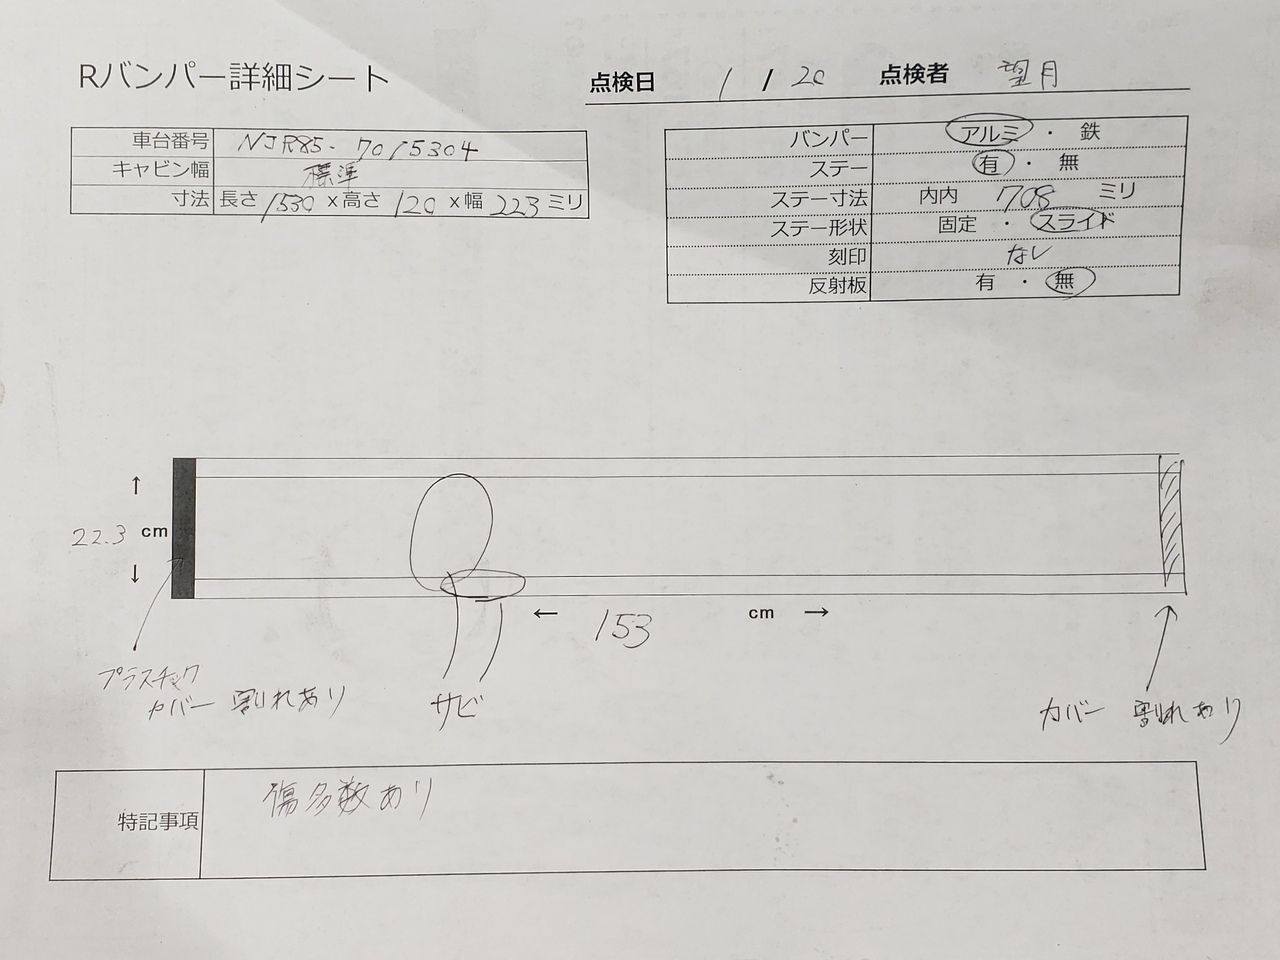 Rバンパー詳細シート
点検日 1 / 20 点検者 望月
車台番号 NJR85-7015304
キャビン幅 標準
寸法 長さ 1530 x高さ 120 x幅 223 ミリ
バンパー アルミ ・ 鉄
ステー 有 ・ 無
ステー寸法 内内 708 ミリ
ステー形状 固定 ・ スライド
刻印 なし
反射板 有 ・ 無
↑
22.3 cm
↓
← 153 cm →
プラスチック
カバー 割れあり
サビ
カバー 割れあり
特記事項 傷多数あり